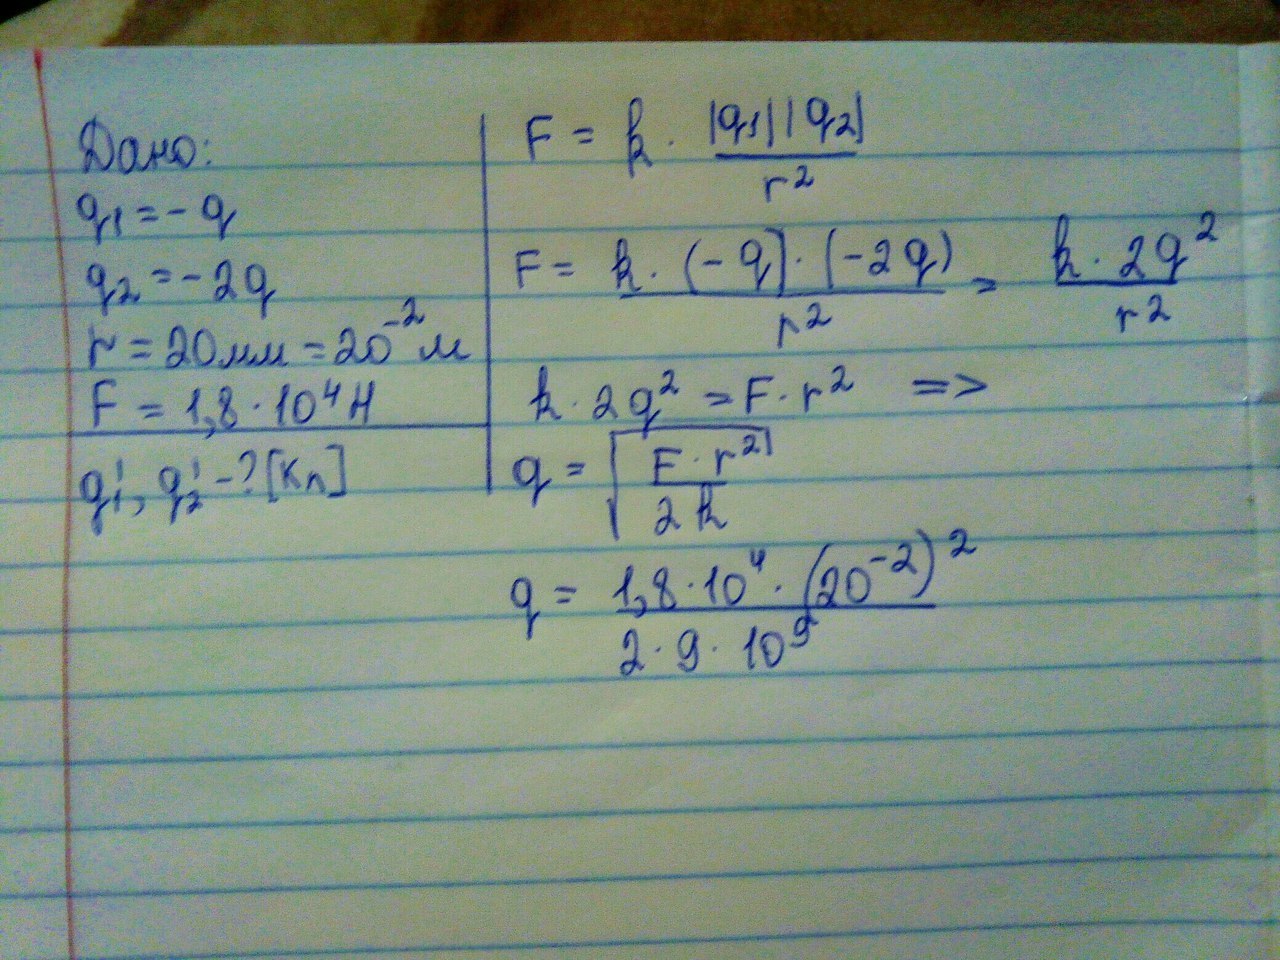 Дано:
q₁ = - q
q₂ = - 2q
r = 20мм = 20⁻² м
F = 1,8 · 10⁴ Н
q₁', q₂' - ? [Кл]
F = k · |q₁| |q₂| / r²
F = k · (- q) · (- 2q) / r² = k · 2q² / r²
k · 2q² = F · r² =>
q = √(F · r² / 2k)
q = 1,8 · 10⁴ · (20⁻²)² / 2 · 9 · 10⁹